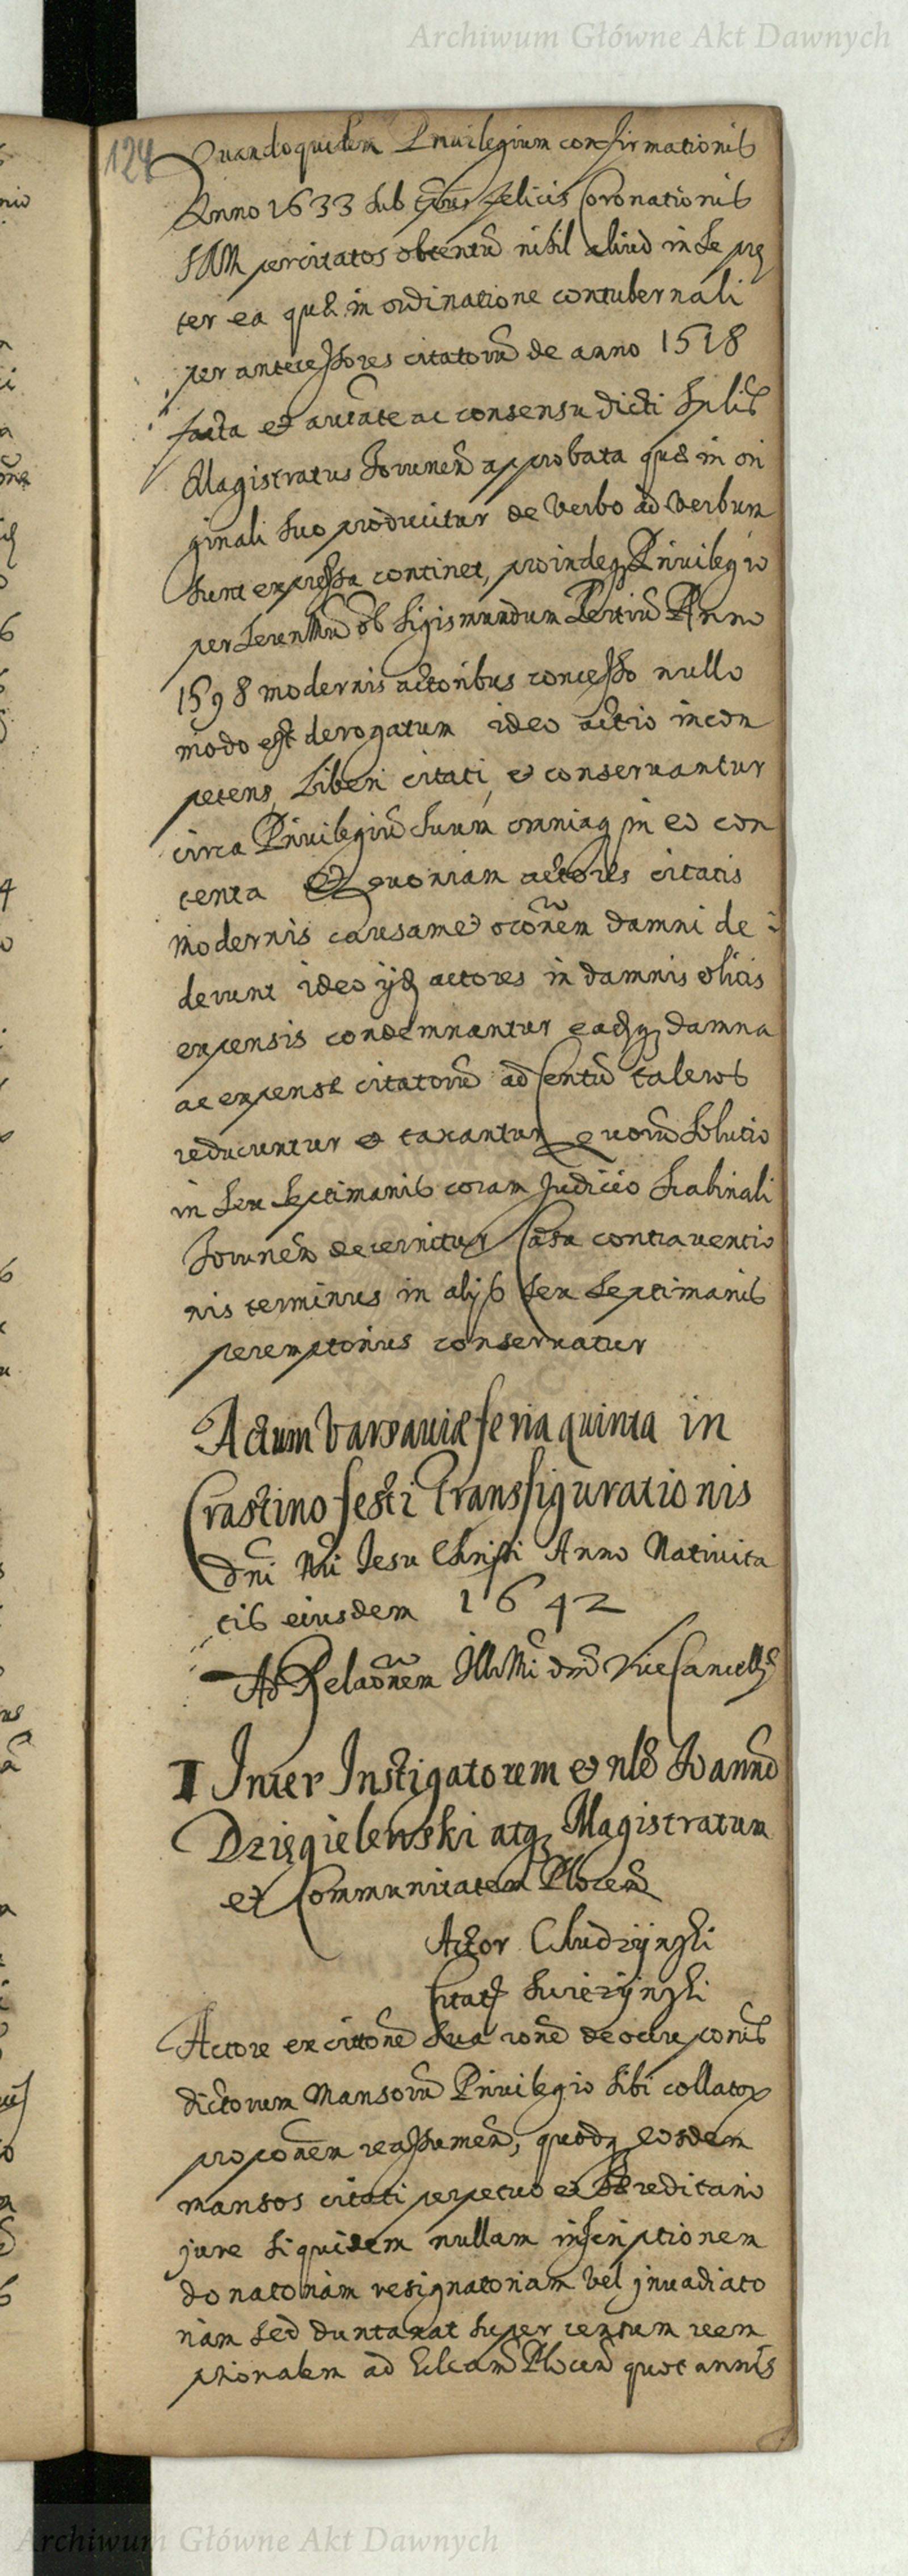 Archiwum Główne Akt Dawnych
124
Quandoquidem Privilegium confirmationis
Anno 1633 sub felicis Coronationis
SRM per citatos obtentũ nihil aliud in se prę
ter ea quæ in ordinatione contubernali
per antecessores citatorũ de anno 1578
facta et auctate ac consensu dicti Splis
Magistratus Torunen approbata quæ in ori
ginali suo producitur de verbo ad verbum
sunt expressa continet, proindeq Privilegio
per Seren Mũ ol Sigismundum Tertiũ Anno
1598 modernis actoribus concesso nullo
modo est derogatum ideo actio incom
petens, Liberi citati, et conservantur
circa Privilegiũ suum omniaq in eo con
tenta Et quoniam actores citatis
modernis causam et occõnem damni de
derunt ideo ijd actores in damnis olicis
expensis condemnantur eadq damna
ac expensæ citatorũ ad Centũ taleros
reducuntur et taxantur quorũ solutio
in sex septimanis coram Judicio Scabinali
Torunen decernitur Casu contraventio
nis terminus in alijs sex septimanis
peremptorius conservatur
Actum Varsaviæ feria quinta in
Crastino festi Transfigurationis
Dni Nri Jesu Christi Anno Nativita
tis eiusdem 1642
Ad Relaõnem Illr Mi dni ViceCancell
I Inter Instigatorem et nle Joannē
Dzięgielewski atq Magistratum
et Communitatem Plocen
Actor Chudzÿnski
Citat Swiezÿnski
Actore ex cittone sua rone de occupconis
dictorum Mansorũ Privilegio sibi collator
proponem reassumen, quodq eosdem
mansos citati perpetuo et Hæreditario
jure siquidem nullam inscriptionem
donatoriam resignatoriam vel invadiato
riam sed duntaxat super censum reem
ptionalem ad Eccleam Plocen quotannis
Archiwum Główne Akt Dawnych